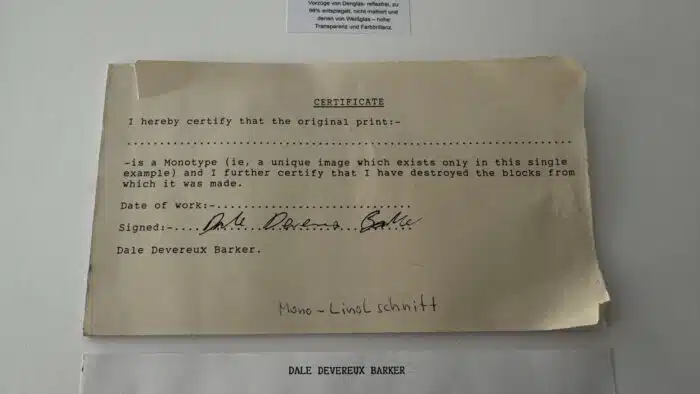 Vorzüge von Denglas- reflexfrei, zu
98% entspiegelt, nicht mattiert und
denen von Weißglas – hohe
Transparenz und Farbbrillanz.
CERTIFICATE
I hereby certify that the original print:-
................................................................
-is a Monotype (ie, a unique image which exists only in this single
example) and I further certify that I have destroyed the blocks from
which it was made.
Date of work:-............................
Signed:-....Dale Devereux Barker
Dale Devereux Barker.
Mono-Linolschnitt
DALE DEVEREUX BARKER